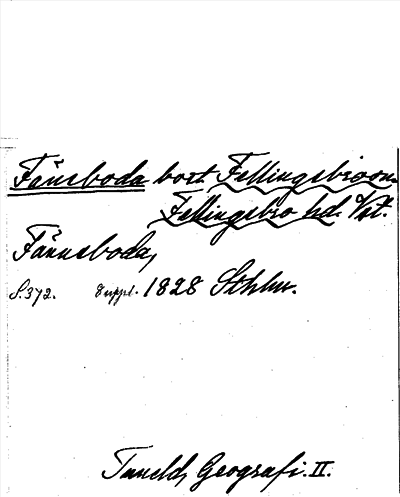 Fänsboda bort. Fellingsbroon.
Fellingsbro hd. Vst.
Fånneboda,
S. 372. Suppl. 1828 Sthlm.
Tuneld, Geografi. II.